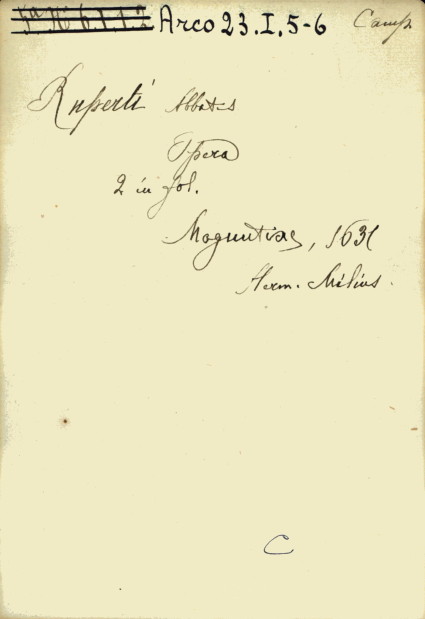 Arco 23.I.5-6 Camp
Ruperti Abbatis
Opera
2 in fol.
Moguntiae, 1631
Herm. Milius.
C